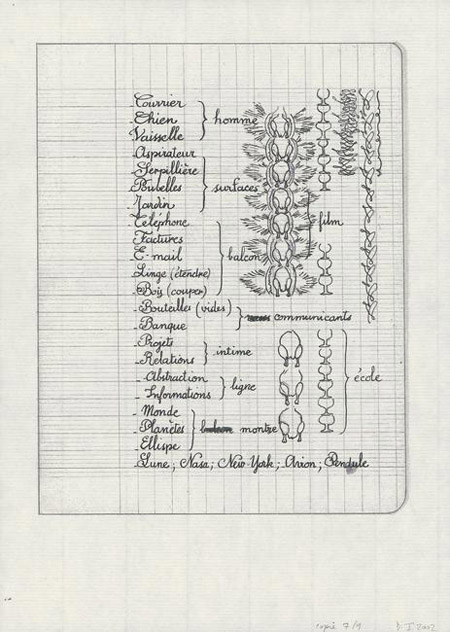 - Courrier
- Chien } homme
- Vaisselle
- Aspirateur
- Serpillière
- Poubelles } surfaces
- Jardin
- Téléphone } film
- Factures
- E-mail } balcon
- Linge (étendre)
- Bois (couper)
- Bouteilles (vides) } communicants
- Banque
- Projets } intime
- Relations
- Abstraction } ligne } école
- Informations
- Monde
- Planètes } montre
- Ellipse
- Lune ; Nasa ; New-York ; Avion ; Pendule
copié 7/9